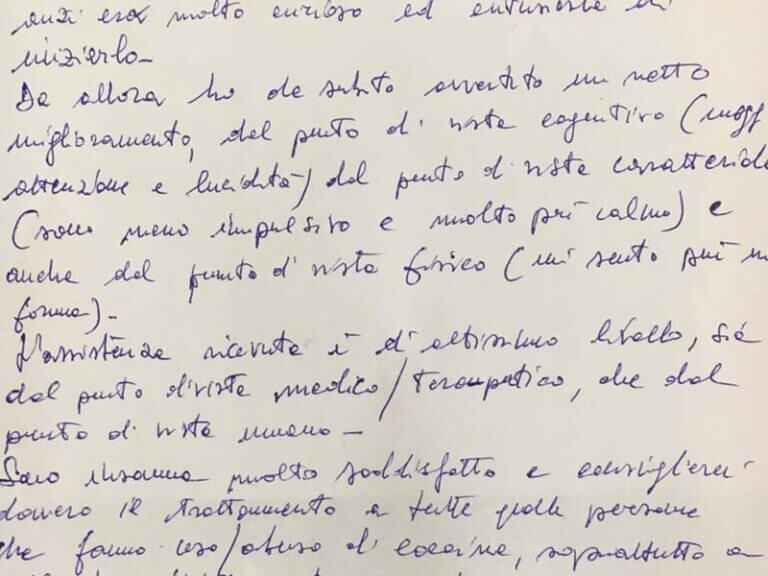 anzi ero molto curioso ed entusiasta di
iniziarlo-
Da allora ho da subito avvertito un netto
miglioramento, dal punto di vista cognitivo (magg
attenzione e lucidità) dal punto di vista caratteriale
(sono meno impulsivo e molto più calmo) e
anche dal punto di vista fisico (mi sento più in
forma)-
L'assistenza ricevuta è di altissimo livello, sia
dal punto di vista medico/terapeutico, che dal
punto di vista umano-
Sono insomma molto soddisfatto e consiglierei
davvero il trattamento a tutte quelle persone
che fanno uso/abuso di cocaina, soprattutto a